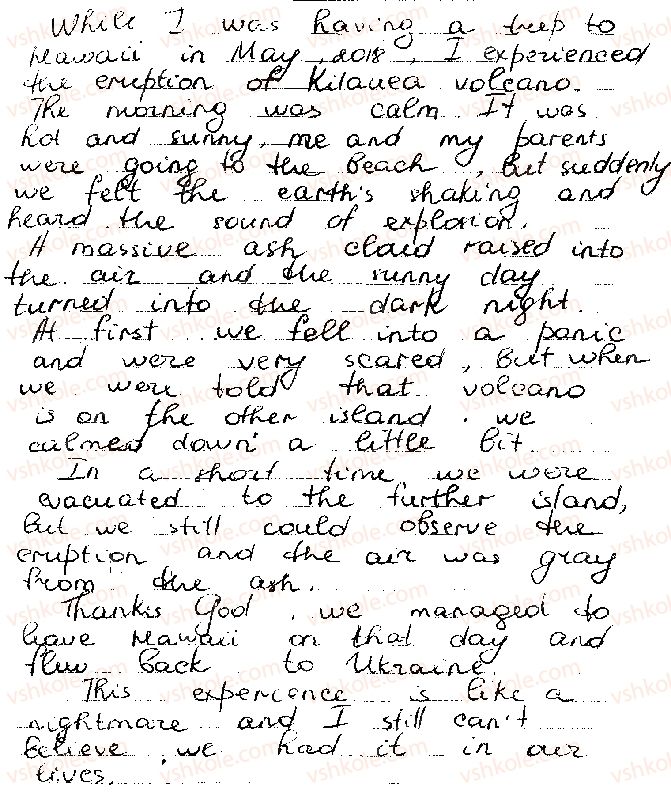 While I was having a trip to
Hawaii in May, 2018, I experienced
the eruption of Kilauea volcano.
The morning was calm. It was
hot and sunny, me and my parents
were going to the beach, but suddenly
we felt the earth's shaking and
heard the sound of explosion.
A massive ash cloud raised into
the air and the sunny day
turned into the dark night.
At first we fell into a panic
and were very scared, But when
we were told that volcano
is on the other island, we
calmed down a little bit.
In a short time we were
evacuated to the further island,
but we still could observe the
eruption and the air was gray
from the ash.
Thanks God, we managed to
leave Hawaii on that day and
flew back to Ukraine.
This experience is like a
nightmare and I still can't
believe we had it in our
lives.